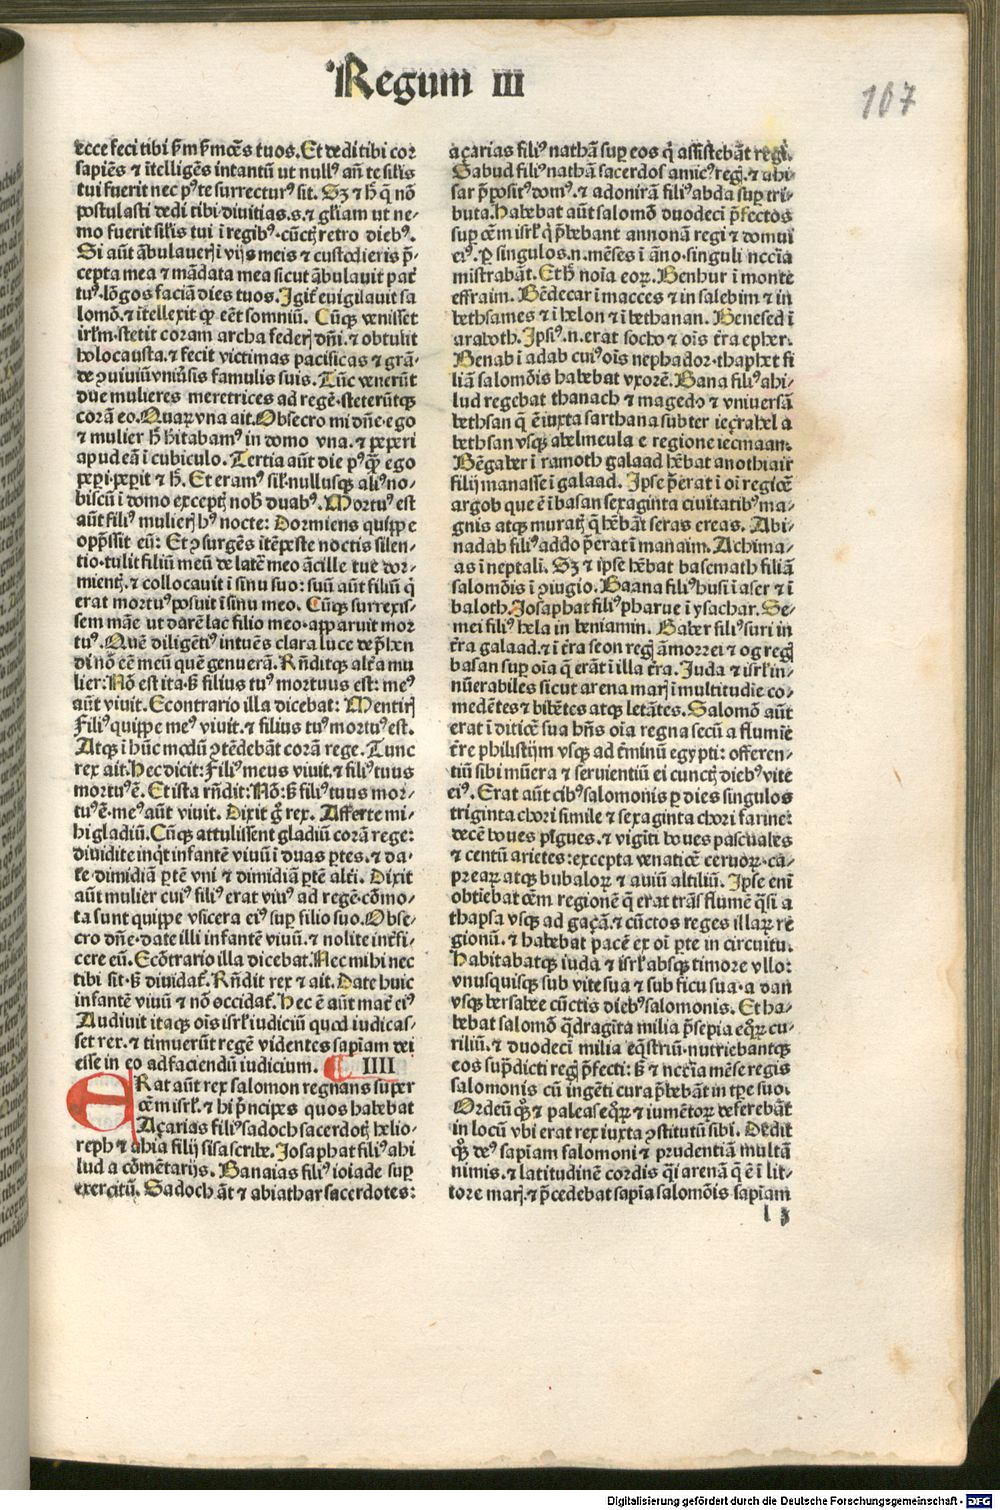 Regum III
107
ecce feci tibi ẜm ẜmões tuos. Et dedi tibi cor
sapiẽs ⁊ ĩtelligẽs intantũ ut nullꝰ añ te silis
tui fuerit nec pꝰ te surrecturꝰ sit. Sꝫ ⁊ h̃ q̃ nõ
postulasti dedi tibi·diuitias.s.⁊ gl̃iam ut ne-
mo fuerit sil̃is tui i regibꝰ·cũctꝭ retro diebꝰ.
Si aũt ãbulaueri ĩ vijs meis ⁊ custodieris p̃-
cepta mea ⁊ mãdata mea sicut ãbulauit pat̃
tuꝰ·lõgos faciã dies tuos. Igit̃ euigilauit sa
lomõ.⁊ ĩtellexit ꝙ eẽt somniũ. Cũqꝫ venisset
irl̃m·stetit coram archa federꝭ dñi.⁊ obtulit
holocausta.⁊ fecit victimas pacificas ⁊ grã-
de ꝯuiuiũ vniũsis famulis suis. Tũc venerũt
due mulieres meretrices ad regẽ·steterũtqꝫ
corã eo. Quaꝝ vna ait. Obsecro mi dñe·ego
⁊ mulier h̃ h̃itabamꝰ in domo vna.⁊ peperi
apud eã ĩ cubiculo. Tertia aũt die pꝰqꝫ ego
peꝑi·peꝑit ⁊ h̃. Et eramꝰ sil̃·nullusqꝫ aliꝰ no-
biscũ ĩ domo exceptꝭ nob̃ duabꝰ. Mortuꝰ est
aũt filiꝰ mulierꝭ hꝰ nocte: Dormiens quippe
opp̃ssit eũ: Et ꝯsurgẽs ĩtẽpeste noctis silen-
tio·tulit filiũ meũ de latẽ meo ãcille tue dor-
mientꝭ.⁊ collocauit ĩ sinu suo: suũ aũt filiũ q̃
erat mortuꝰ posuit ĩ sinu meo. Cũqꝫ surrexis-
sem mãe ut darẽ lac filio meo·apparuit mor
tuꝰ. Quẽ diligẽtiꝰ intuẽs clara luce dep̃hen
di nõ eẽ meũ quẽ genuerã. Rñditqꝫ alt̃a mu
lier: Nõ est ita·ẜꝫ filius tuꝰ mortuus est: meꝰ
aũt viuit. Econtrario illa dicebat: Mentirꝭ
Filiꝰ quippe meꝰ viuit.⁊ filius tuꝰ mortuꝰ est.
Atqꝫ ĩ hũc modũ ꝯtẽdebãt corã rege. Tunc
rex ait. Hec dicit: Filiꝰ meus viuit.⁊ filiꝰ tuus
mortuꝰ ẽ. Et ista rñdit: Nõ: ẜꝫ filiꝰ tuus mor-
tuꝰ ẽ·meꝰ aũt viuit. Dixit g̃ rex. Afferte mi-
hi gladiũ. Cũqꝫ attulissent gladiũ corã rege:
diuidite inqt infantẽ viuũ ĩ duas ꝑtes.⁊ da-
te·dimidiã ꝑtẽ vni ⁊ dimidiã ꝑtẽ alt̃i. Dixit
aũt mulier cuiꝰ filiꝰ erat viuꝰ ad regẽ·cõmo-
ta sunt quippe viscera eiꝰ suꝑ filio suo. Obse-
cro dñe·date illi infantẽ viuũ.⁊ nolite inẽfi-
cere eũ. Ecõtrario illa dicebat. Nec mihi nec
tibi sit·ẜꝫ diuidat̃. Rñdit rex ⁊ ait. Date huic
infantẽ viuũ ⁊ nõ occidat̃. Hec ẽ aũt mat̃ eiꝰ
Audiuit itaqꝫ oĩs isrl̃ iudiciũ quod iudicas-
set rex.⁊ timuerũt regẽ videntes sapĩam dei
esse in eo ad faciendũ iudicium. IIII
ERat aũt rex salomon regnans super
oẽm isrl̃.⁊ hi p̃ncipes quos habebat
Açarias filiꝰ sadoch sacerdotꝭ helio-
reph ⁊ ahia filij sisa scribe. Josaphat filiꝰ ahi
lud a cõmẽtarijs. Banaias filiꝰ ioiade suꝑ
exercitũ. Sadoch ãt ⁊ abiathar sacerdotes:
açarias filiꝰ nathã suꝑ eos q̃ assistebãt regĩ.
Sabud filiꝰ nathã sacerdos amicꝰ regꝭ.⁊ ahi-
sar p̃positꝰ domꝰ.⁊ adonirã filiꝰ abda suꝑ tri-
buta. Habebat aũt salomõ duodecĩ p̃fectos
suꝑ oẽm isrl̃ q̃ p̃bebant annonã regi ⁊ domui
eiꝰ. ꝑ singulos.n.mẽses ĩ ãno·singuli nccĩa
mĩstrabãt. Et h̃ noĩa eoꝝ. Benhur ĩ monte
effraim. Bẽdecar ĩ macces ⁊ in salebim ⁊ in
bethsames ⁊ ĩ helon ⁊ ĩ bethanan. Benesed ĩ
araboth. Ipsiꝰ.n.erat socho ⁊ oĩs t̃ra epher.
Benab ĩ adab cuiꝰ oĩs nephador·thaphet fi
liã salomõis habebat vxorẽ. Bana filiꝰ ahi-
lud regebat thanach ⁊ magedo ⁊ vniuersã
bethsan q̃ ẽ iuxta sarthana subter iezrahel a
bethsan vsqꝫ abelmeula e regione iecmaan.
Bẽgaber ĩ ramoth galaad hẽbat anothiair
filij manasse ĩ galaad. Ipse p̃erat ĩ oĩ regiõe
argob que ẽ ĩ basan sexaginta ciuitatibꝰ ma-
gnis atqꝫ muratꝭ q̃ hẽbãt seras ereas. Abi-
nadab filiꝰ addo p̃erat ĩ manaim. Achima-
as ĩ neptali. Sꝫ ⁊ ipse hẽbat basemath filiã
salomõis ĩ ꝯiugio. Baana filiꝰ husi ĩ aser ⁊ ĩ
baloth. Josaphat filiꝰ pharue ĩ ysachar. Se-
mei filiꝰ hela in beniamin. Gaber filiꝰ suri in
t̃ra galaad.⁊ ĩ t̃ra seon regꝭ amorrei ⁊ og regꝭ
basan suꝑ oĩa q̃ erãt ĩ illa t̃ra. Juda ⁊ isrl̃ in-
nũerabiles sicut arena marꝭ ĩ multitudĩe co-
medẽtes ⁊ bibẽtes atqꝫ letãtes. Salomõ aũt
erat ĩ diticẽ sua hñs oĩa regna secũ a flumĩe
t̃re philistijm vsqꝫ ad t̃minũ egypti: offeren-
tiũ sibi mũera ⁊ seruientiũ ei cunctꝭ diebꝰ vite
eiꝰ. Erat aũt cibꝰ salomonis ꝑ dies singulos
triginta chori simile ⁊ sexaginta chori farine:
decẽ boues pĩgues.⁊ vigĩti boues pascuales
⁊ centũ arietes: excepta venatiõe ceruoꝝ·ca-
preaꝝ atqꝫ bubaloꝝ ⁊ auiũ altiliũ. Ipse enĩ
obtĩebat oẽm regionẽ q̃ erat trãs flumẽ q̃si a
thapsa vsqꝫ ad gaçã.⁊ cũctos reges illaꝝ re
gionũ.⁊ habebat pacẽ ex oĩ ꝑte in circuitu.
Habitabatqꝫ iuda ⁊ isrl̃ absqꝫ timore vllo:
vnusquisqꝫ sub vite sua ⁊ sub ficu sua·a dan
vsqꝫ bersabee cũctis diebꝰ salomonis. Et ha-
bebat salomõ q̃dragĩta milia p̃sepia eqꝝ cu-
riliũ.⁊ duodecĩ milia eq̃striũ·nutriebantqꝫ
eos sup̃dicti regꝭ p̃fecti: ẜꝫ ⁊ nccĩa mẽse regis
salomonis cũ ingẽti cura p̃bebãt in tꝑe suo.
Ordeũ qꝫ ⁊ paleas eqꝝ ⁊ iumẽtoꝝ deferebãt
in locũ vbi erat rex iuxta ꝯstitutũ sibi. Dedit
qꝫ deꝰ sapĩam salomoni ⁊ prudentiam multã
nimis.⁊ latitudinẽ cordis q̃si arenã q̃ ẽ ĩ lit-
tore marꝭ.⁊ p̃cedebat sapĩa salomõis sapĩam
l 3
Digitalisierung gefördert durch die Deutsche Forschungsgemeinschaft - DFG